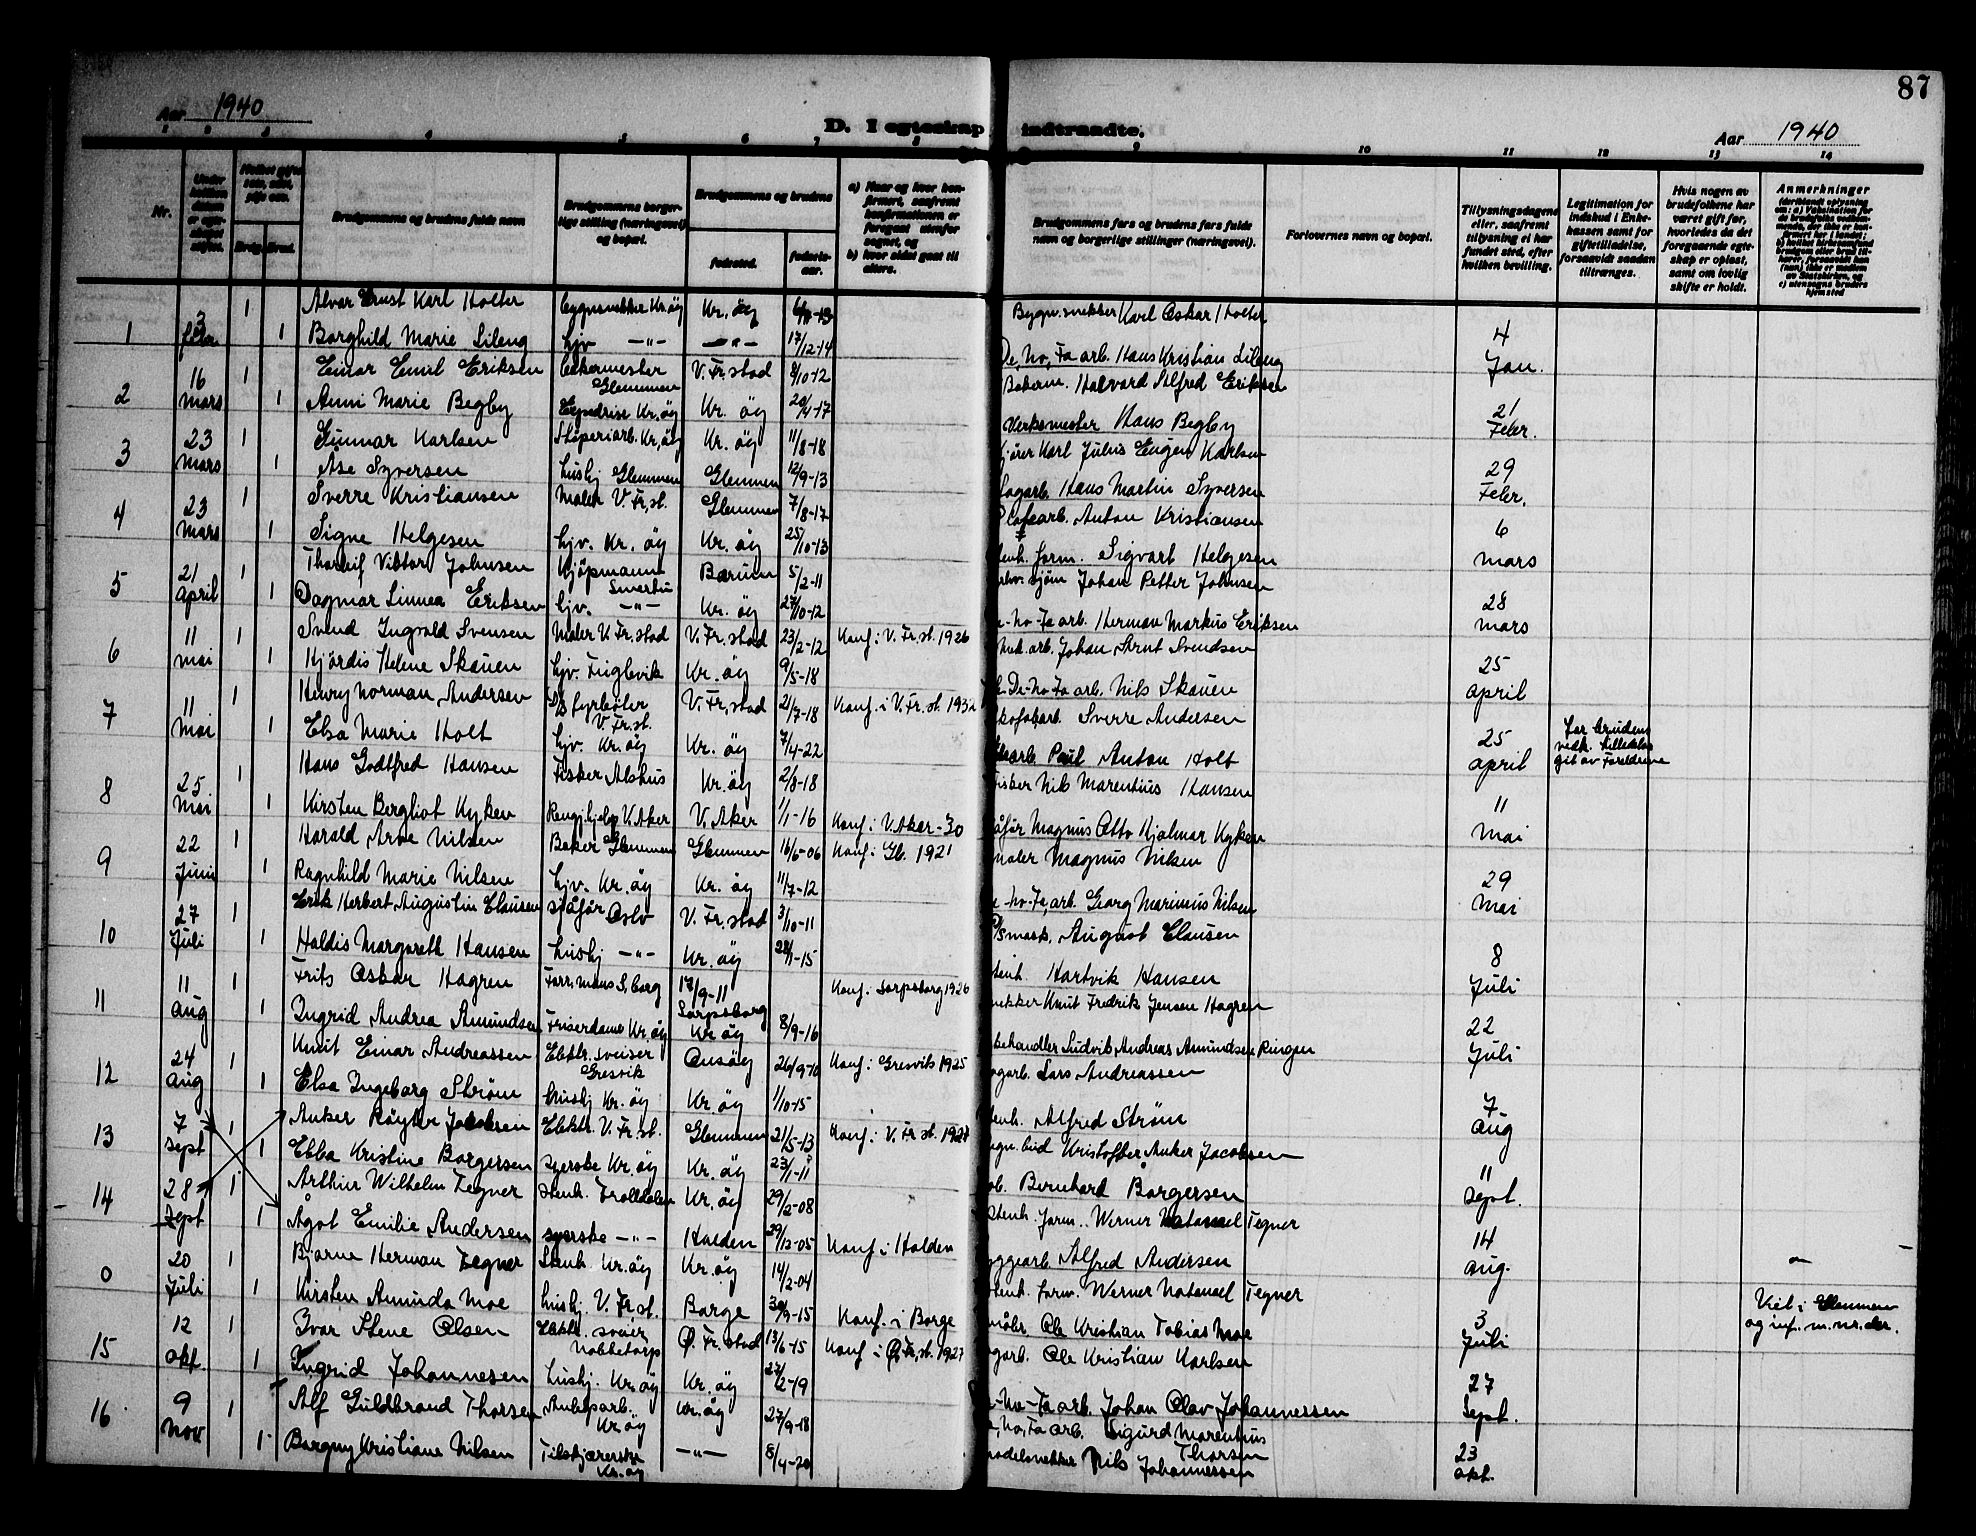 87
Aar 1940
D. I egteskap indtraadte.
Aar 1940
1 2 3 4 5 6 7 8 9 10 11 12 13 14
Nr.
Brudgommens og brudens fulde navn
Brudgommens borgerlige stilling (næringsvei) og bopæl.
Brudgommens og brudens
fødested.
fødselsaar.
a) Naar og hvor konfirmert, saafremt konfirmationen er foregaaet utenfor sognet, og
b) hvor sidst gaat til alters.
Brudgommens fars og brudens fars fulde navn og borgerlige stillinger (næringsvei).
Forlovernes navn og bopæl.
Tillysningsdagene eller, saafremt tillysning ei har fundet sted, efter hvilken bevilling.
Legitimation for indskud i Enkekassen samt for giftetilladelse, forsaavidt saadan tiltrænges.
Hvis nogen av brudefolkene har været gift før, hvorledes da det foregaaende egteskap er opløst, samt om lovlig skifte er holdt.
Anmerkninger
1 3 febr 1 Alvar Ernst Karl Holter Bygnsnekker Kr.øy Kr. øy Bygn.snekker Karl Oskar Holter 4 Jan.
1 Borghild Marie Lileng hjv —"— —"— 17/12-14 De-No-Fa arb. Hans Kristian Lileng
2 16 mars 1 Einar Emil Eriksen Bakermester Glemmen V. Fr.stad 8/10-12 Bakerm. Halvard Alfred Eriksen 21 Febr.
1 Anni Marie Begby Expedrise Kr.øy Kr. øy 20/4-17 Verksmester Hans Begby
3 23 mars 1 Gunnar Karlsen Støperiarb. Kr.øy Kr. øy 11/8-18 Kjører Karl Julius Eugen Karlsen 29 Febr.
1 Åse Syversen hushj Glemmen Glemmen 12/9-13 Sagarb. Hans Martin Syversen
4 23 mars 1 Sverre Kristiansen Maler V. Fr.st. Glemmen 7/8-17 Anton Kristiansen 6 mars
1 Signe Helgesen hjv. Kr. øy Kr. øy 25/10-13 Stenh. form. Sigvart Helgesen
5 21 april 1 Thorleif Viktor Johnsen Kjøpmann Smertu Bærum 5/2-11 Johan Petter Johnsen 28 mars
1 Dagmar Linnea Eriksen hjv. —"— Kr. øy 27/10-12 De-No-Fa arb. Herman Markus Eriksen
6 11 mai 1 Svend Ingvald Svensen Maler V. Fr.stad V. Fr.stad 23/2-12 Konf. i V. Fr.st. 1926 Mek. arb. Johan Arnt Svendsen 25 april
1 Hjørdis Helene Skauen hjv. Fuglevik Kr. øy 9/5-18 De-No-Fa arb. Nils Skauen
7 11 mai 1 Henry Norman Andersen D/S fyrbøter V. Fr.st. V. Fr.stad 21/7-18 Konf. i V. Fr. st. 1932 Skofabarb. Sverre Andersen 25 april
1 Elsa Marie Holt hjv. Kr. øy Kr. øy 7/4-22 Paul Anton Holt For brudens vedk. tilladelse git av Foreldrene
8 25 Mai 1 Hans Godtfred Hansen Fisker Alshus Kr. øy 2/8-18 Fisker Nils Marentius Hansen 11 Mai
1 Kirsten Bergliot Kyken Rengj.hjelp V. Aker V. Aker 1/1-16 Konf. i V. Aker -30 Sjåfør Magnus Otto Hjalmar Kyken
9 22 Juni 1 Harald Arve Nilsen Baker Glemmen Glemmen 16/6-06 Konf. i Gl. 1921 Maler Magnus Nilsen 29 Mai
1 Ragnhild Marie Nilsen hjv. Kr. øy Kr. øy 11/7-12 De-No-Fa arb. Georg Marinius Nilsen
10 27 Juli 1 Erik Herbert Augustin Clausen sjåfør Oslo V. Fr. stad 3/10-11 August Clausen 8 Juli
1 Haldis Margareth Hansen hushj —"— Kr. øy 28/1-15 Stenh. Hartvik Hansen
11 11 aug 1 Frits Oskar Hagren Forr.mann S.borg 17/9-11 Sarpsborg Konf. i Sarpsborg 1926 Snekker Knut Fredrik Jensen Hagren 22 Juli
1 Ingrid Andrea Amundsen Friserdame Kr. øy Kr. øy 8/9-16 handler Ludvik Andreas Amundsen Ringen
12 24 aug 1 Knut Einar Andreassen Elektr. sveiser Gresvik Onsøy 26/9-10 Konf. i Gresvik 1925 Sagarb. Lars Andreassen 7 aug
1 Elsa Ingeborg Strøm hushj Kr. øy Kr. øy 1/10-15 Stenh. Alfred Strøm
13 7 sept 1 Anker Røyter Jacobsen Elektr. V. Fr. st. Glemmen 21/5-13 Konf. i V. Fr st. 1927 bud Kristoffer Anker Jacobsen 11 sept.
1 Ebba Kristine Borgersen syerske Kr. øy Kr. øy 23/1-11 Bernhard Borgersen
14 28 sept 1 Arthur Wilhelm Tegner Stenh. Trolldalen Kr. øy 29/2-08 Stenh. form. Werner Natanael Tegner 14 aug.
1 Ågot Emilie Andersen syerske —"— Halden 29/12-05 Konf. i Halden Byggearb. Alfred Andersen
0 20 Juli 1 Bjarne Herman Tegner Stenh. Kr. øy Kr. øy 14/2-04 Stenh. form. Werner Natanael Tegner 3 Juli Viet i Glemmen og inf. m. nr. der.
1 Kirsten Amunda Moe hushj. V. Fr. st. Borge 30/9-15 Konf. i Borge Ole Kristian Tobias Moe
15 12 okt. 1 Ivar Stene Olsen Elektr. sveiser Nabbetorp Ø. Fr. stad 13/6-15 Konf i Ø. Fr. st. 1927 Sagarb. Ole Kristian Karlsen 27 Sept.
1 Ingrid Johannesen hushj. Kr. øy Kr. øy 27/2-19 De-No-Fa arb. Johan Olav Johannessen
16 9 Nov 1 Alf Guldbrand Thorsen Kr. øy Kr. øy 27/9-18 De-No-Fa arb. Sigurd Marentius Thorsen 23 okt.
1 Borgny Kristiane Nilsen Tilskjærerske Kr. øy —"— 8/4-20 Modelsnekker Nils Johannessen